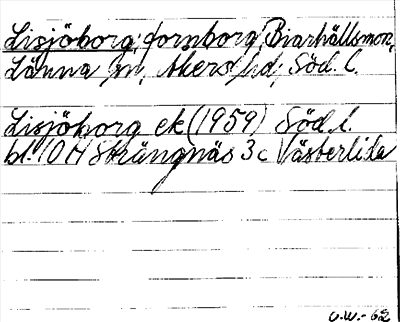 Lisjöborg, fornborg, Bjarhällsmon,
Länna sn, Åkers hd, Söd. l.
Lisjöborg ek (1959) Söd. l.
bl. 10 H Strängnäs 3 c Västerlida
U.W.-62